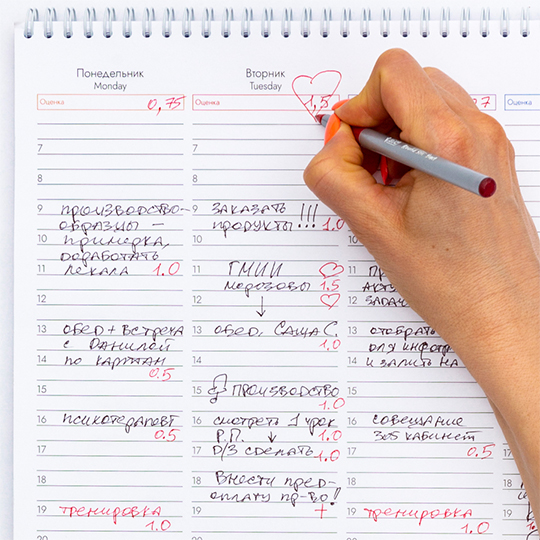 Понедельник
Monday
Оценка 0,75
7
8
9 производство-
образцы –
10 примерка,
доработать
11 лекала 1.0
12
13 обед + встреча
с Данилой
14 по картам
0.5
15
16 психотерапевт
0.5
17
18
19 тренировка
1.0
20
Вторник
Tuesday
Оценка 1,5
7
8
9 заказать
продукты!!! 1.0
10
11 ГМИИ
Морозовы 1.5
12
13 обед, Саша С.
1.0
14
15 производство
1.0
16 смотреть 1 урок
Р.П. ↓ 1.0
17 D/З сделать 1.0
18 Внести пред-
оплату пр-во!
19 +
11
12 задач
13 отобрать
для
14 и залить на
15
16 совещание
305 кабинет
17 0.5
18
19 тренировка
1.0
17
18
19